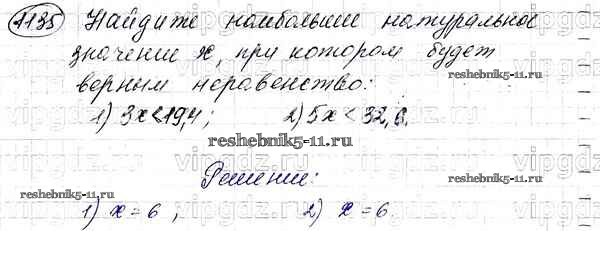 1135 Найдите наибольшее натуральное
значение x, при котором будет
верным неравенство:
1) 3x<19,4; 2) 5x<32,6.
reshebnik5-11.ru
reshebnik5-11.ru
Решение:
reshebnik5-11.ru
reshebnik5-11.ru
1) x=6; 2) x=6.